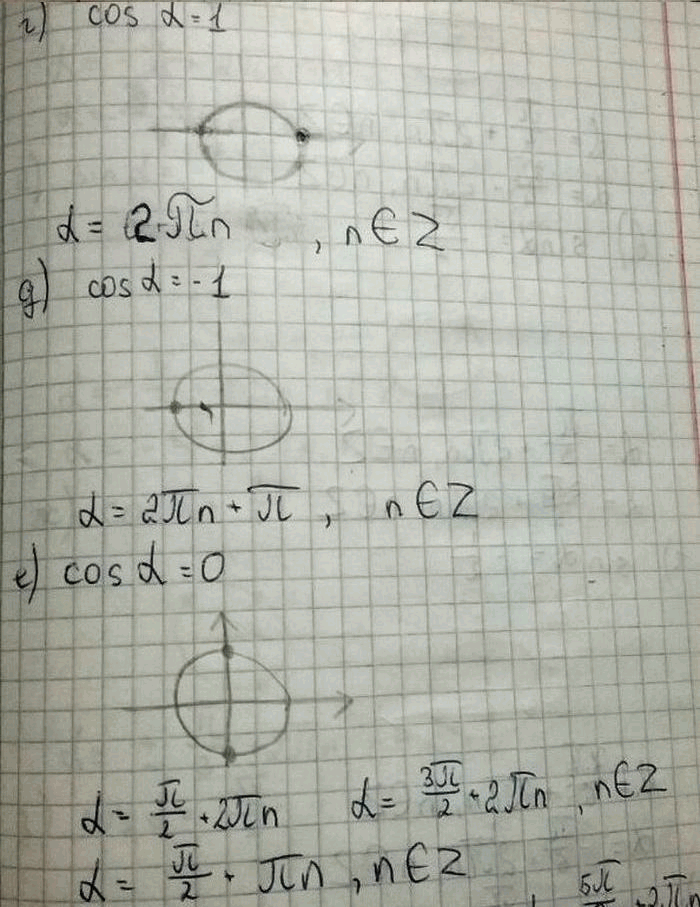 г) cos α = 1
α = 2πn , n ∈ Z
д) cos α = -1
α = 2πn + π , n ∈ Z
е) cos α = 0
α = π/2 + 2πn α = 3π/2 + 2πn , n ∈ Z
α = π/2 + πn , n ∈ Z
5π